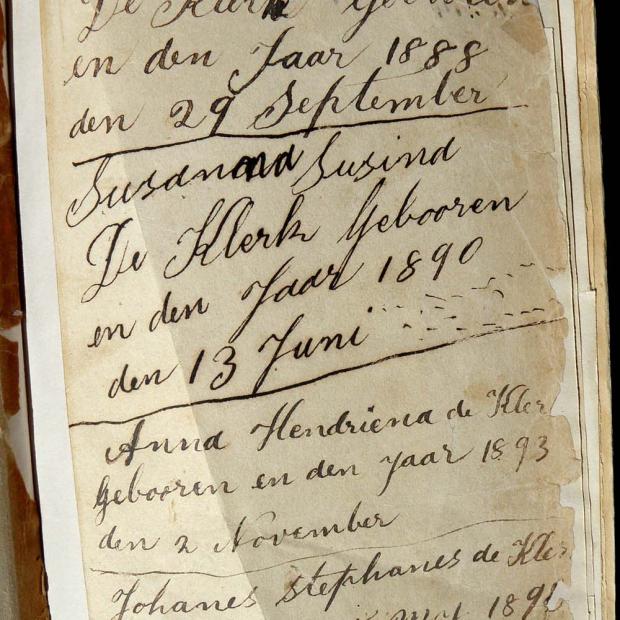 De Klerk Gebooren
en den Jaar 1888
den 29 September
Susanana Susind
De Klerk Gebooren
en den Jaar 1890
den 13 Juni
Anna Hendriena de Kler
Gebooren en den Jaar 1893
den 2 November
Johanes Stephanes de Kler